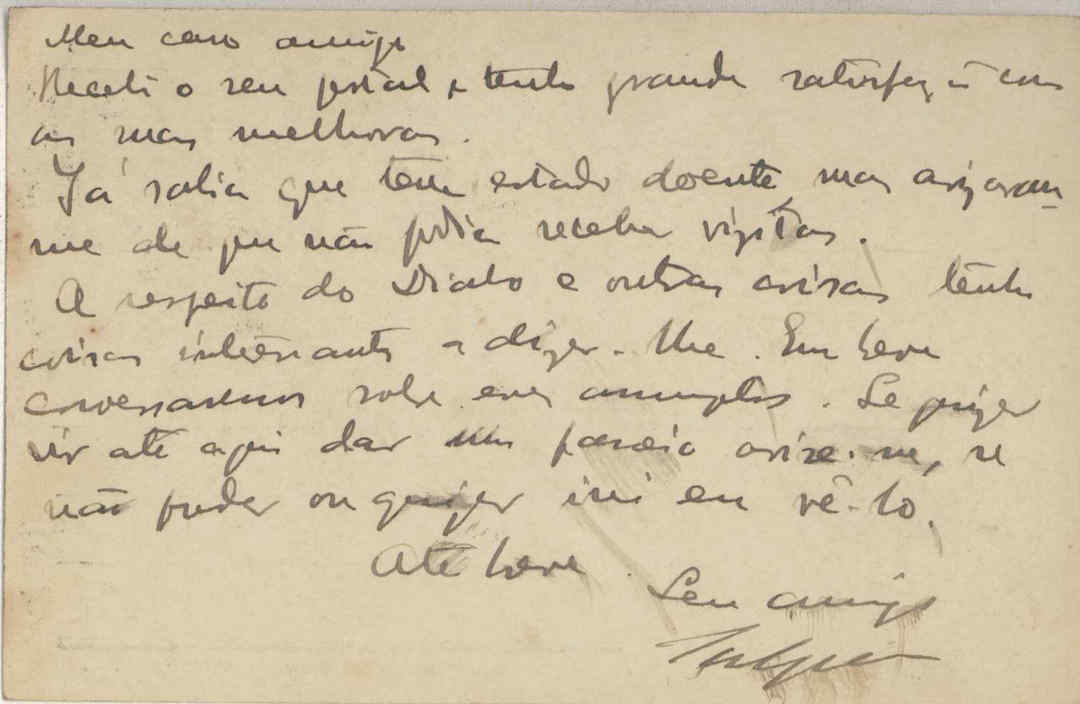 Meu caro amigo
Recebi o seu postal e tenho grande satisfação com
as suas melhoras.
Já sabia que tem estado doente mas avizaram-
me de que não podia receber vizitas.
A respeito do Diabo e outras coisas tenho
coisas interessantes a dizer-lhe. Em breve
conversaremos sobre esses assumptos. Se quizer
vir até aqui dar um passeio avise-me, se
não puder ou quizer irei eu vê-lo.
Até breve.
Seu amigo